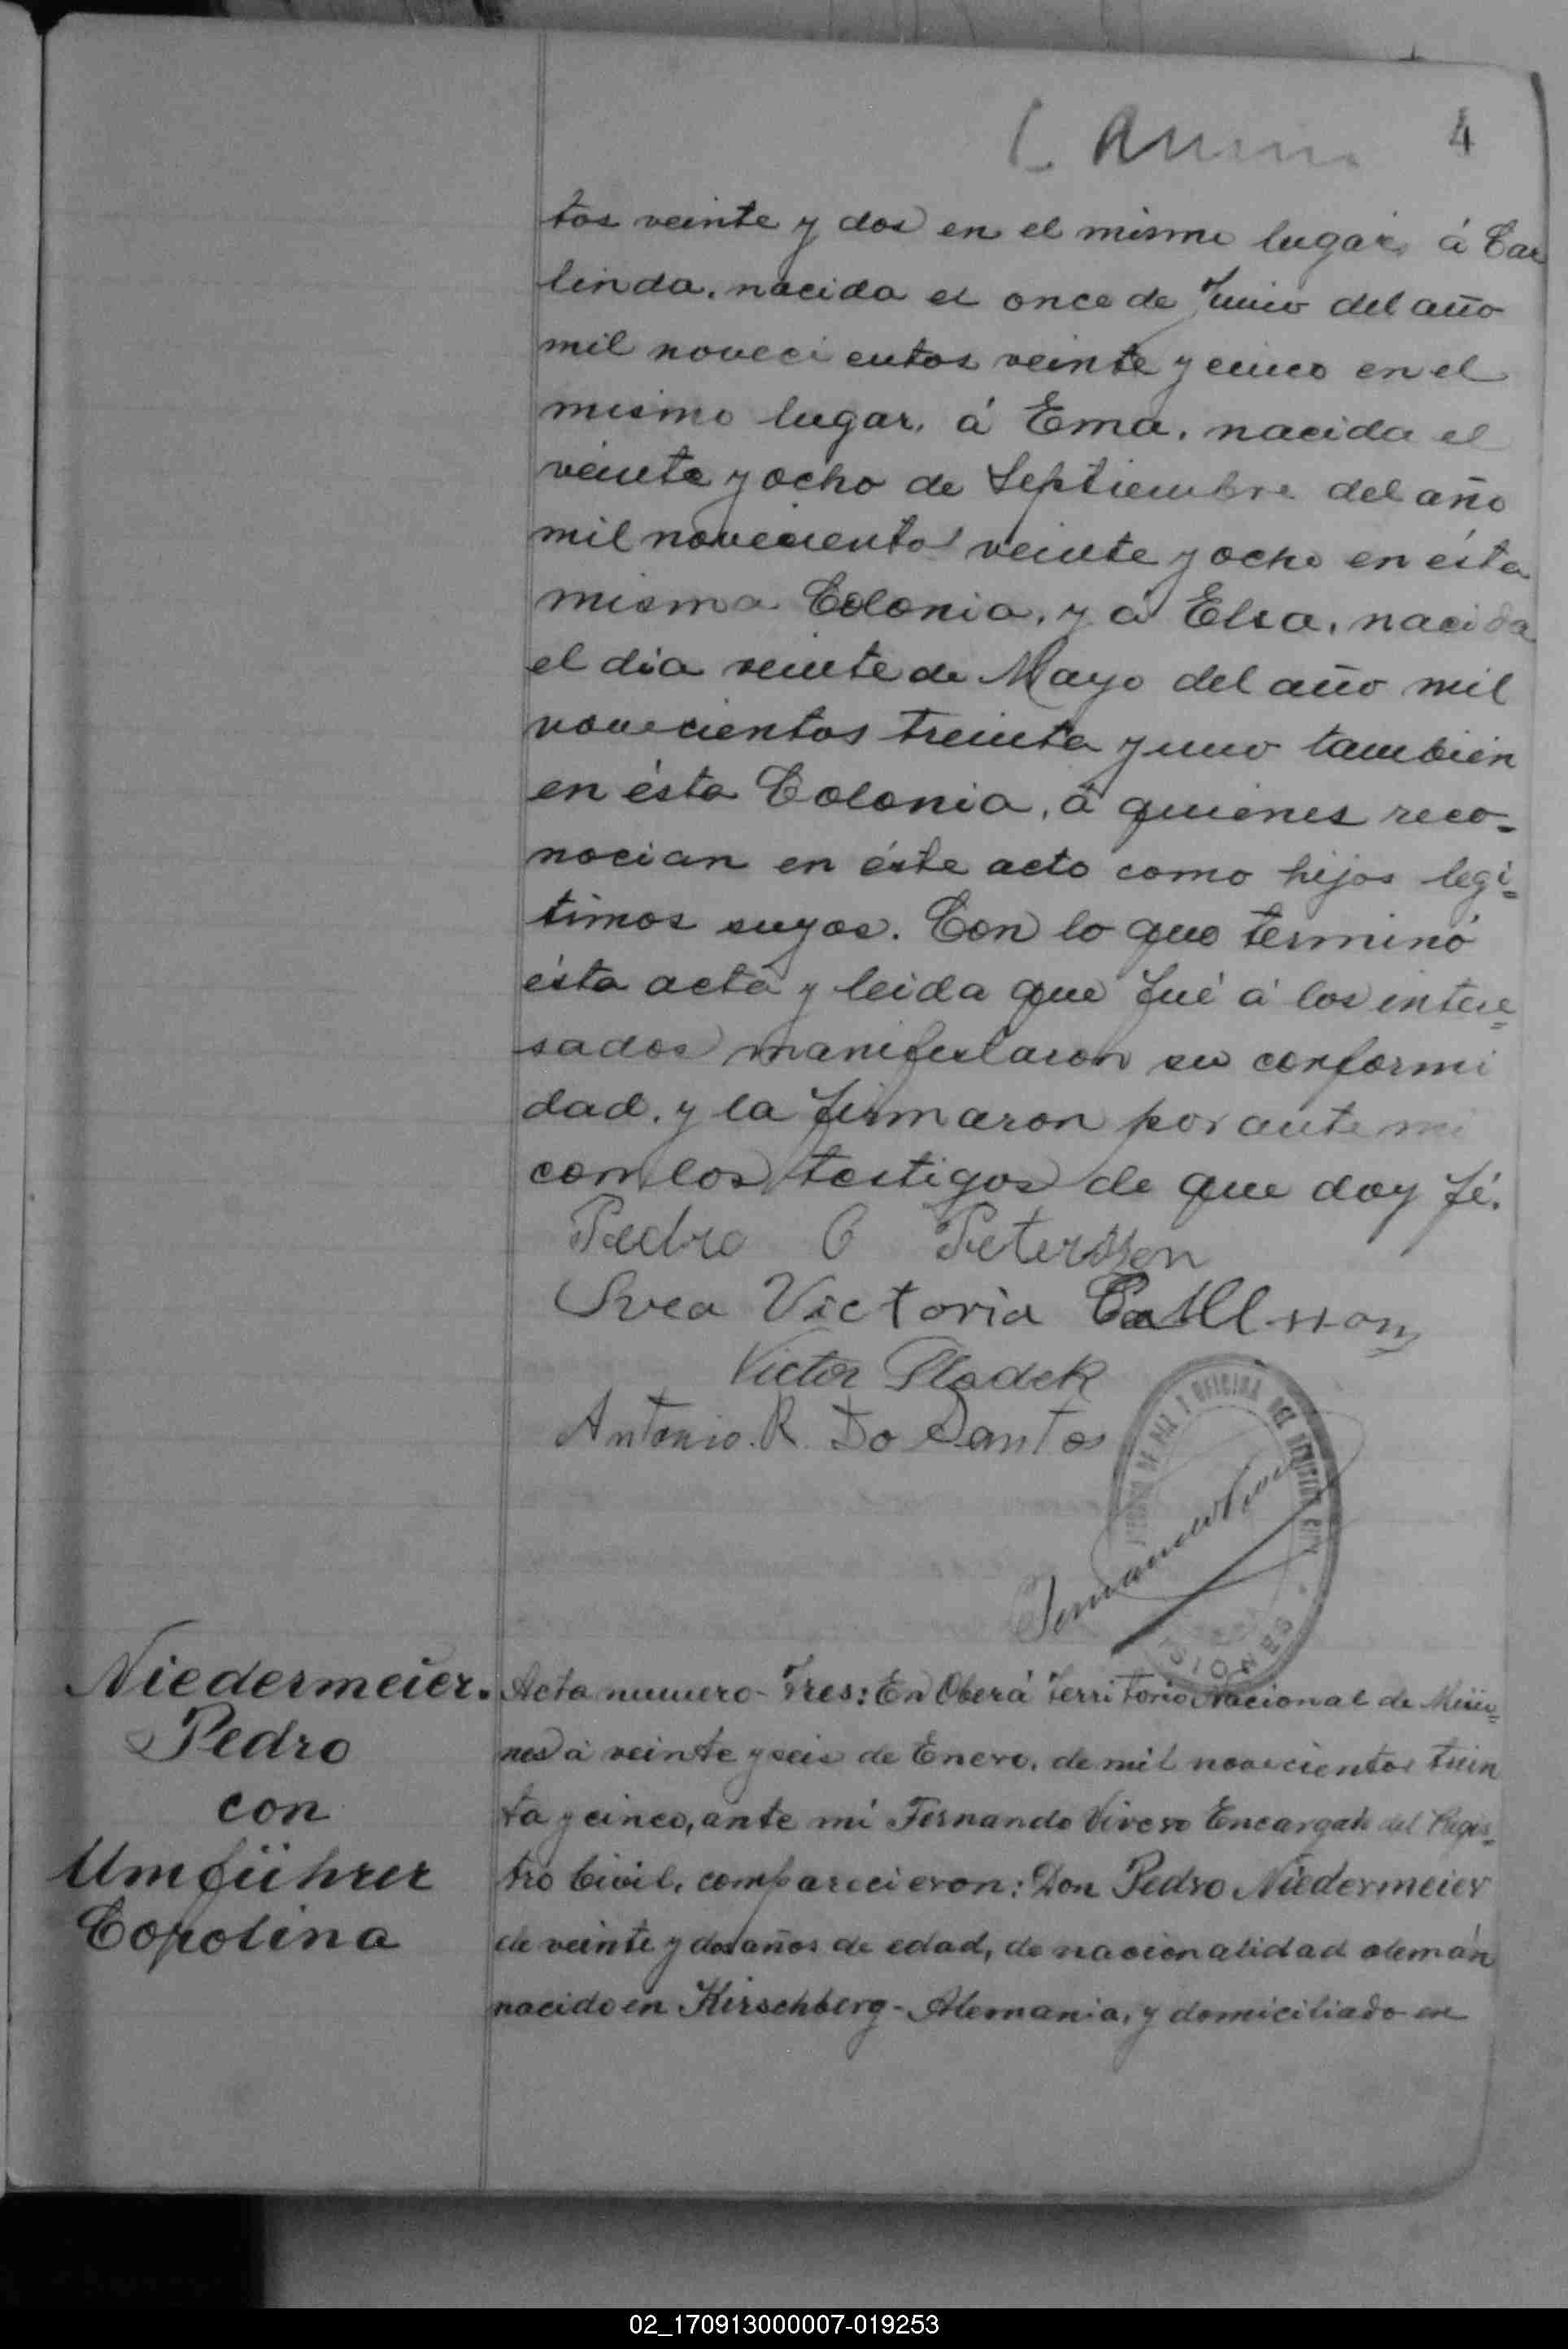 4
tos veinte y dos en el mismo lugar, á Car
linda, nacida el once de Junio del año
mil noveci entos veinte y cinco en el
mismo lugar, á Ema, nacida el
veinte y ocho de Septiembre del año
mil novecientos veinte y ocho en ésta
misma Colonia, y á Elsa, nacida
el dia veinte de Mayo del año mil
novecientos treinta y uno tambien
en ésta Colonia, á quienes reco-
nocian en éste acto como hijos legi-
timos suyos. Con lo que terminó
ésta acta y leida que fué á los intere-
sados manifestaron su conformi
dad, y la firmaron por ante mi
con los testigos de que doy fé.
Pedro C Peterszen
Svea Victoria
Victor Pladek
Antonio. R. Do Santos
DE PAZ Y OFICINA DEL REGISTRO CIVIL
MISIONES
Fernando Vivero
Niedermeier.
Pedro
con
Umführer
Copolina
Acta numero- Tres: En Oberá Territorio Nacional de Misio-
nes á veinte y seis de Enero, de mil novecientos trein
ta y cinco, ante mi Fernando Vivero Encargado del Regis-
tro Civil, comparecieron: Don Pedro Niedermeier
de veinte y dos años de edad, de nacionalidad alemán
nacido en Kirschberg-Alemania, y domiciliado en
02_170913000007-019253